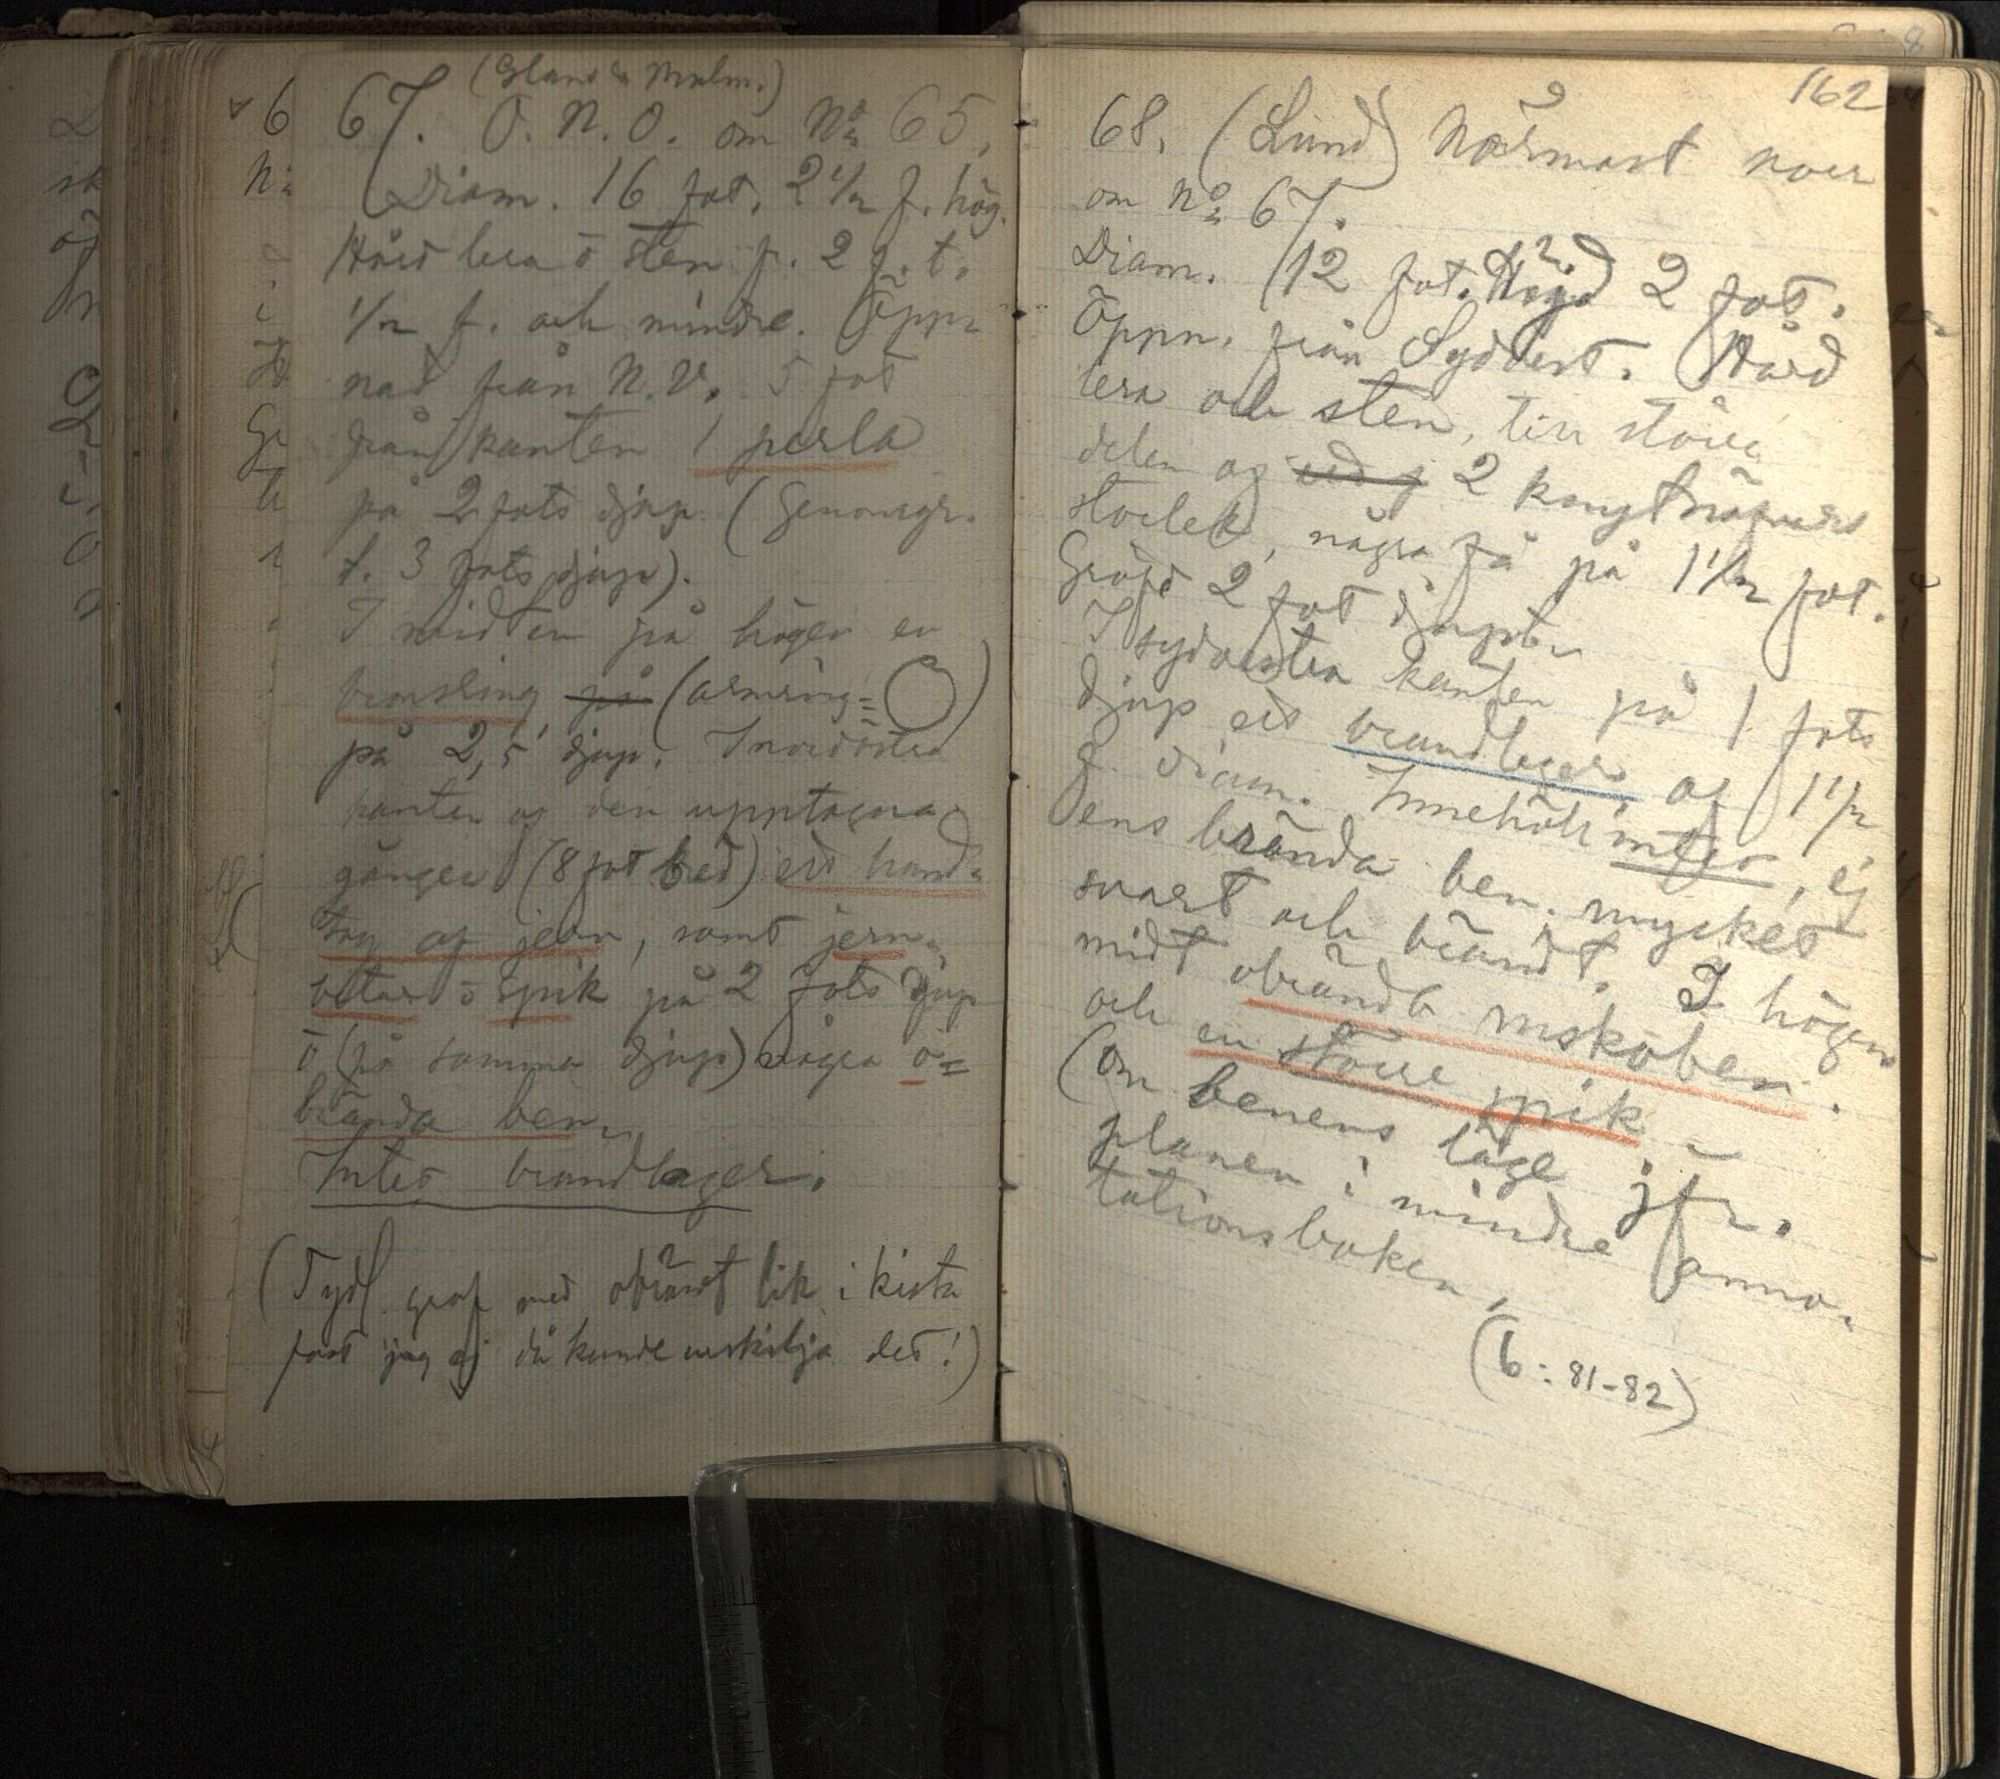 (Gland & Malm.)
67. O. N. O. om No 65,
Diam. 16 fot, 2 1/2 f. hög.
Hård lera o sten fr. 2 f. t.
1/2 f. och mindre. Öpp-
nad från N.V. 5 fot
från kanten 1 perla
på 2 fots djup (Genomgr.
t. 3 fots djup).
I midten på högen en
bronsring, på (armring =
på 2,5 djup. I nordöstra
kanten af den upptagna
gången (8 fot bred) ett hand-
tag af jern, samt jern-
bitar o spik på 2 fots djup
o (på samma djup) några o-
brända ben.
Intet brandlager.
(Tydl. graf med obränt lik i kista
fast jag ej då kunde urskilja det!)
162
68. (Lund) Närmast norr
om No 67.
Diam. 12 fot. Höjd 2 fot.
Öppn. från Sydvest. Hård
lera och sten, till större
delen af 2 knytnäfvars
storlek, några få på 1 1/2 fot.
Gräfd 2 fot djupt
I sydvestra kanten på 1 fots
djup ett brandlager, af 1 1/2
f. diam. Innehöll intet, ej
ens brända ben. mycket
svart och brändt. I högens
midt obrända mskoben.
och en större spik
(om benens läge jfr.
planen i mindre anno-
tationsboken,
(6: 81-82)